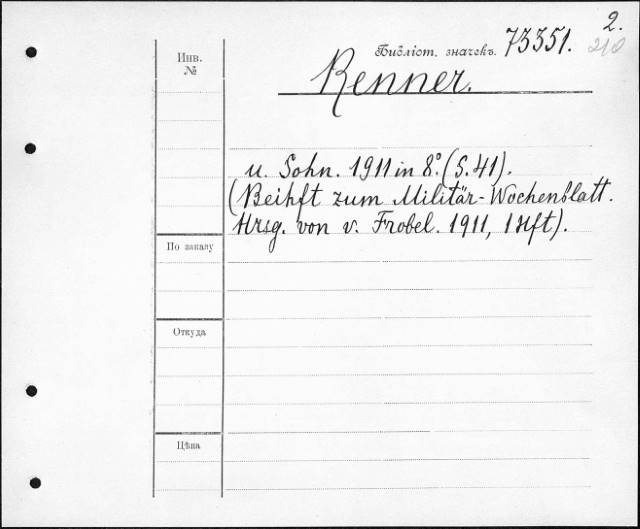 2.
Инв.
№
Библіот. значекъ. 73351.
210
Renner.
u. Sohn. 1911 in 8°. (S. 41).
(Beihft zum Militär-Wochenblatt.
Hrsg. von v. Frobel. 1911, 1 Hft).
По заказу
Откуда
Цѣна